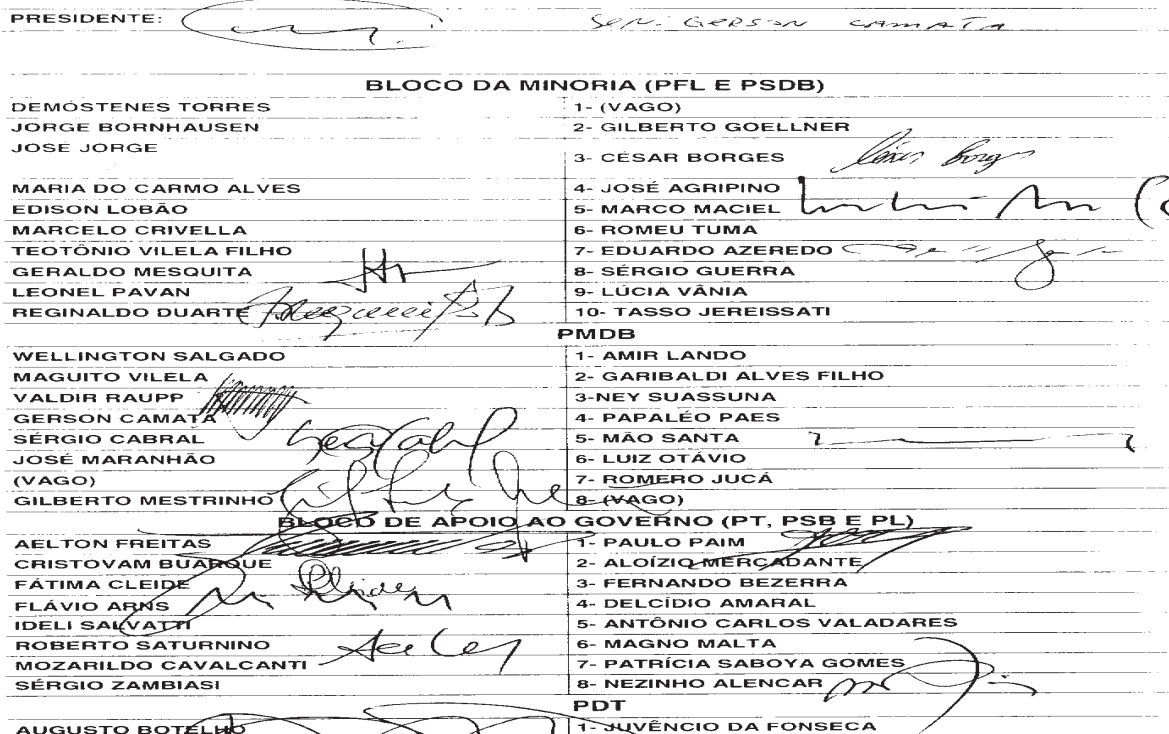 PRESIDENTE: SEN. GERSON CAMATA
BLOCO DA MINORIA (PFL E PSDB)
DEMÓSTENES TORRES 1- (VAGO)
JORGE BORNHAUSEN 2- GILBERTO GOELLNER
JOSÉ JORGE
3- CÉSAR BORGES César Borges
MARIA DO CARMO ALVES 4- JOSÉ AGRIPINO
EDISON LOBÃO 5- MARCO MACIEL
MARCELO CRIVELLA 6- ROMEU TUMA
TEOTÔNIO VILELA FILHO 7- EDUARDO AZEREDO
GERALDO MESQUITA 8- SÉRGIO GUERRA
LEONEL PAVAN 9- LÚCIA VÂNIA
REGINALDO DUARTE 10- TASSO JEREISSATI
PMDB
WELLINGTON SALGADO 1- AMIR LANDO
MAGUITO VILELA 2- GARIBALDI ALVES FILHO
VALDIR RAUPP 3-NEY SUASSUNA
GERSON CAMATA 4- PAPALÉO PAES
SÉRGIO CABRAL 5- MÃO SANTA
JOSÉ MARANHÃO 6- LUIZ OTÁVIO
(VAGO) 7- ROMERO JUCÁ
GILBERTO MESTRINHO 8- (VAGO)
BLOCO DE APOIO AO GOVERNO (PT, PSB E PL)
AELTON FREITAS 1- PAULO PAIM
CRISTOVAM BUARQUE 2- ALOÍZIO MERCADANTE
FÁTIMA CLEIDE 3- FERNANDO BEZERRA
FLÁVIO ARNS 4- DELCÍDIO AMARAL
IDELI SALVATTI 5- ANTÔNIO CARLOS VALADARES
ROBERTO SATURNINO 6- MAGNO MALTA
MOZARILDO CAVALCANTI 7- PATRÍCIA SABOYA GOMES
SÉRGIO ZAMBIASI 8- NEZINHO ALENCAR
PDT
AUGUSTO BOTELHO 1- JUVÊNCIO DA FONSECA